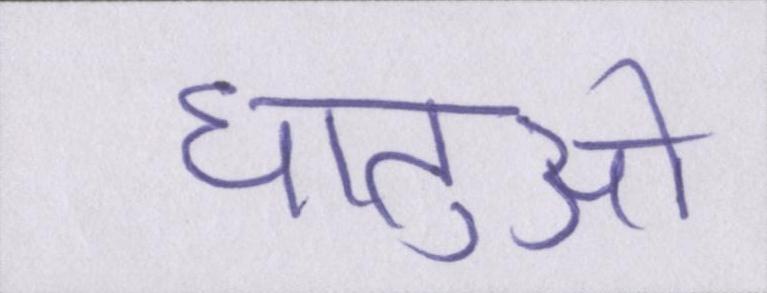 धातुओ